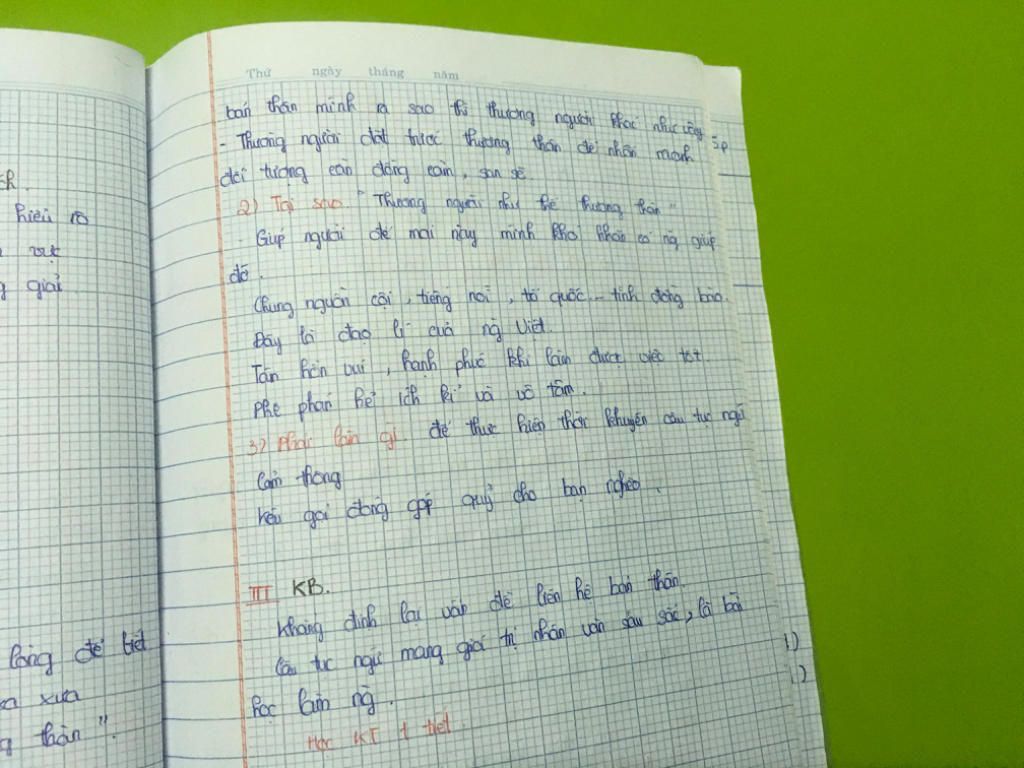 ch.
hiểu rõ
vực
g giải
lòng để biết
xa xưa
g thân".
Thứ ngày tháng năm
bản thân mình ra sao thì thương người khác như vậy
- Thương người đặt trước thương thân để nhấn mạnh
đối tượng cần đồng cảm, san sẻ.
2) Tại sao "Thương người như thể thương thân"
- Giúp người để mai này mình khó khăn có ng giúp
đỡ.
Chung nguồn cội, tiếng nói, tổ quốc... tình đồng bào.
Đây là đạo lí của ng Việt.
Tâm hồn vui, hạnh phúc khi làm được việc tốt
Phê phán kẻ ích kỉ và vô tâm.
3) Phải làm gì để thực hiện lời khuyên câu tục ngữ
Cảm thông
kêu gọi đóng góp quỹ cho bạn nghèo.
III KB.
Khẳng định lại vấn đề liên hệ bản thân.
Câu tục ngữ mang giá trị nhân văn sâu sắc, là bài
học làm ng.
Học KT 1 tiết
1)